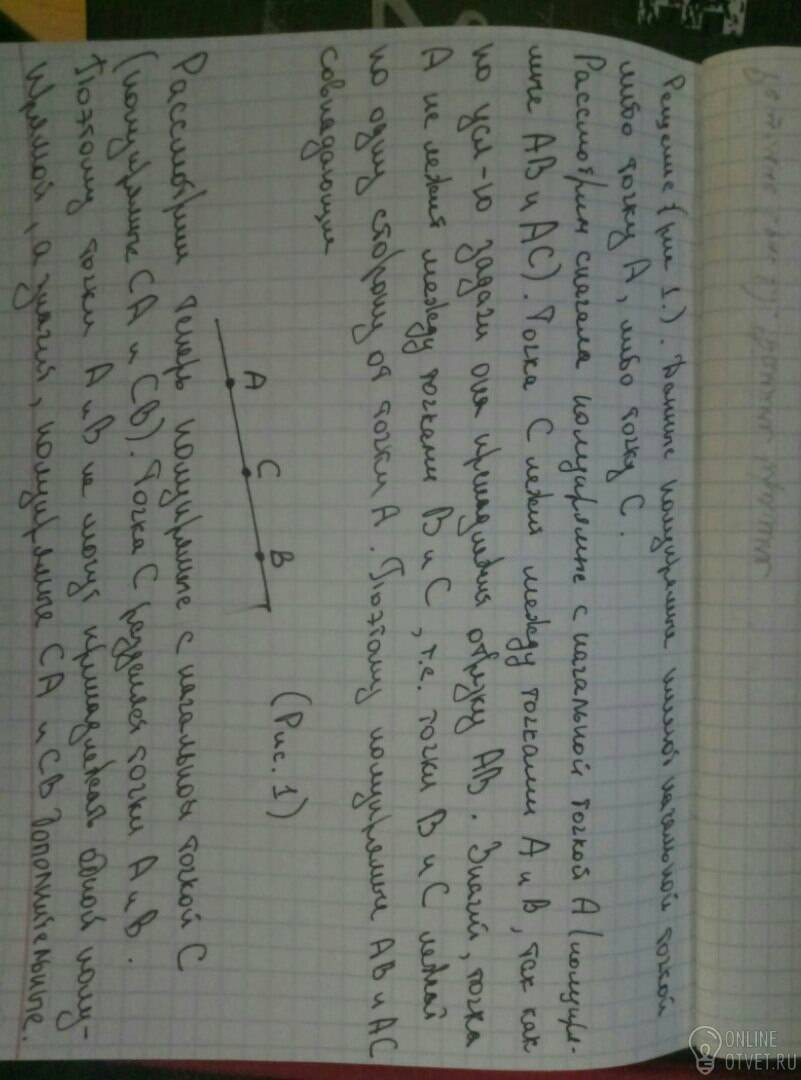 Решение (рис 1.). Данные полупрямые имеют начальной точкой
либо точку А, либо точку С.
Рассмотрим сначала полупрямые с начальной точкой А (полупря-
мые АВ и АС). Точка С лежит между точками А и В, так как
по усл-ю задачи она принадлежит отрезку АВ. Значит, точка
А не лежит между точками В и С, т.е. точки В и С лежат
по одну сторону от точки А. Поэтому полупрямые АВ и АС
совпадающие
А
С
В
(Рис. 1)
Рассмотрим теперь полупрямые с начальной точкой С
(полупрямые СА и СВ). Точка С разделяет точки А и В.
Поэтому точки А и В не могут принадлежать одной полу-
прямой, а значит, полупрямые СА и СВ дополнительные.
ONLINE
OTVET.RU